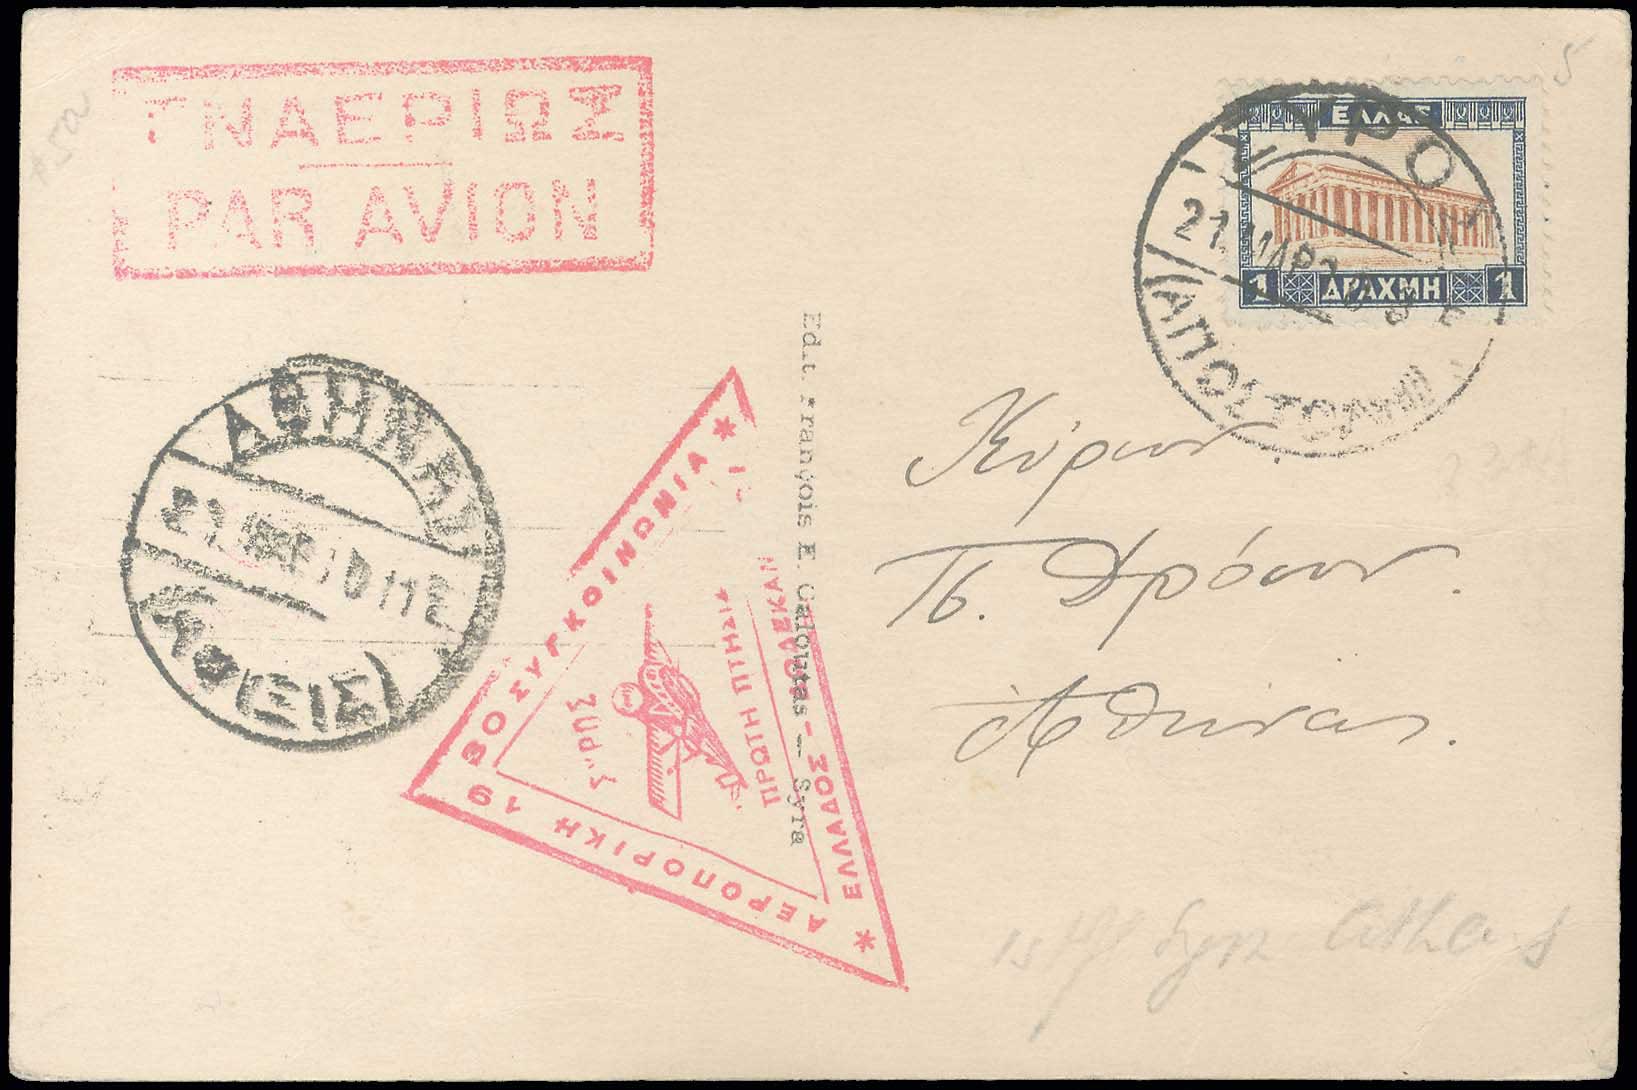 ΕΝΑΕΡΙΩΣ
PAR AVION
ΕΛΛΑΣ
1 ΔΡΑΧΜΗ 1
ΣΥΡΟΣ
21 ΜΑΡ
ΑΠΟΣΤΟΛΗ
ΑΘΗΝΑΙ
21 ΜΑΡ 30 11
ΑΦΙΞΙΣ
ΑΕΡΟΠΟΡΙΚΗ 1930 ΣΥΓΚΟΙΝΩΝΙΑ
ΕΛΛΑΔΟΣ -
ΣΥΡΟΣ
ΠΡΩΤΗ ΠΤΗΣΙΣ
Edit. François E.
— Syra
Κύριον
Π. Δρόσον.
Ἀθήνας.
1st flt Syra Athens
5